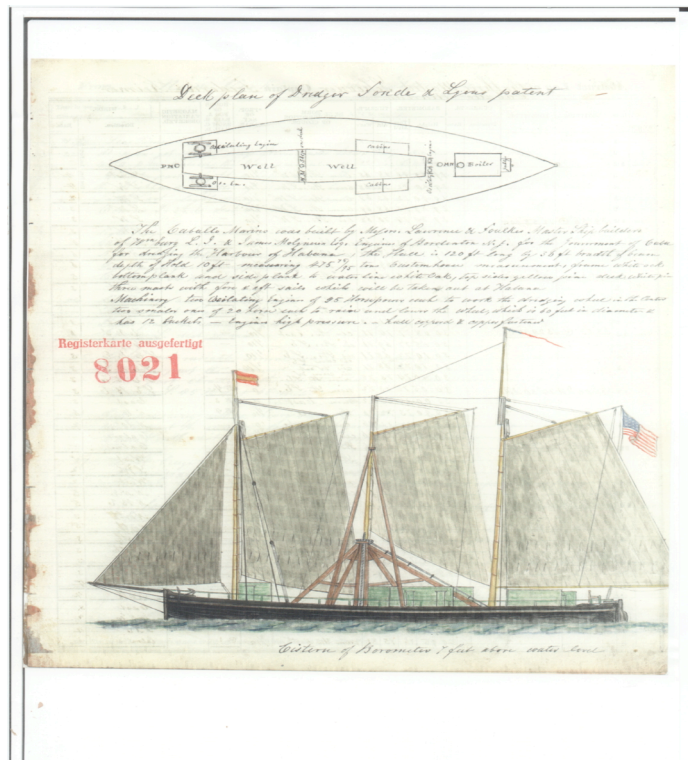 Deck plan of Dredger Sonde & Lyons patent
oscilating Engine
PHC
Well
Well
Cabin
Boiler
Osc. En.
Cabin
The Caballo Marino was built by Messrs. Lawrence & Foulkes Master Ship builders
of Wmsburg L. I. & James Engine of Bordentown N. J. for the Government of Cuba
for dredging the Harbour of Habana, the Hull is 120 feet long by 36 feet breadth of beam
depth of Hold 10 feet measuring 435 tons Custom house measurement, frame white oak
bottom plank and side plank to water line white Oak, top sides yellow pine deck white pine
three masts with fore & aft sails which will be taken out at Habana
Machinery two oscilating Engines of 25 Horsepower each to work the dredging wheel in the
two smaler ones of 20 horse each to raise and lower the wheel, which is 60 feet in diameter &
has 12 buckets — Engine high pressure. — Hull copperd & copper fastend
Registerkarte ausgefertigt
8021
Cistern of Barometer 7 feet above water level